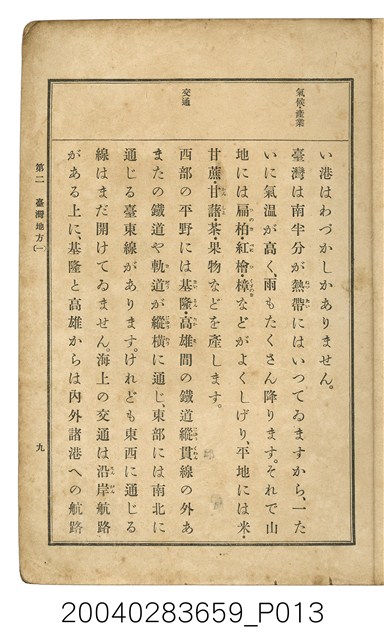 氣候・產業
交通
い港はわづかしかありません。
臺灣は南半分が熱帶にはいつてゐますから、一た
いに氣温が高く、雨もたくさん降ります。それで山
地には扁柏・紅檜・樟などがよくしげり、平地には米・
甘蔗・甘藷・茶・果物などを產します。
西部の平野には基隆・高雄間の鐵道縱貫線の外あ
またの鐵道や軌道が縱橫に通じ、東部には南北に
通じる臺東線があります。けれども東西に通じる
線はまだ開けてゐません。海上の交通は沿岸航路
がある上に、基隆と高雄からは內外諸港への航路
第二 臺灣地方(一)
九
20040283659_P013